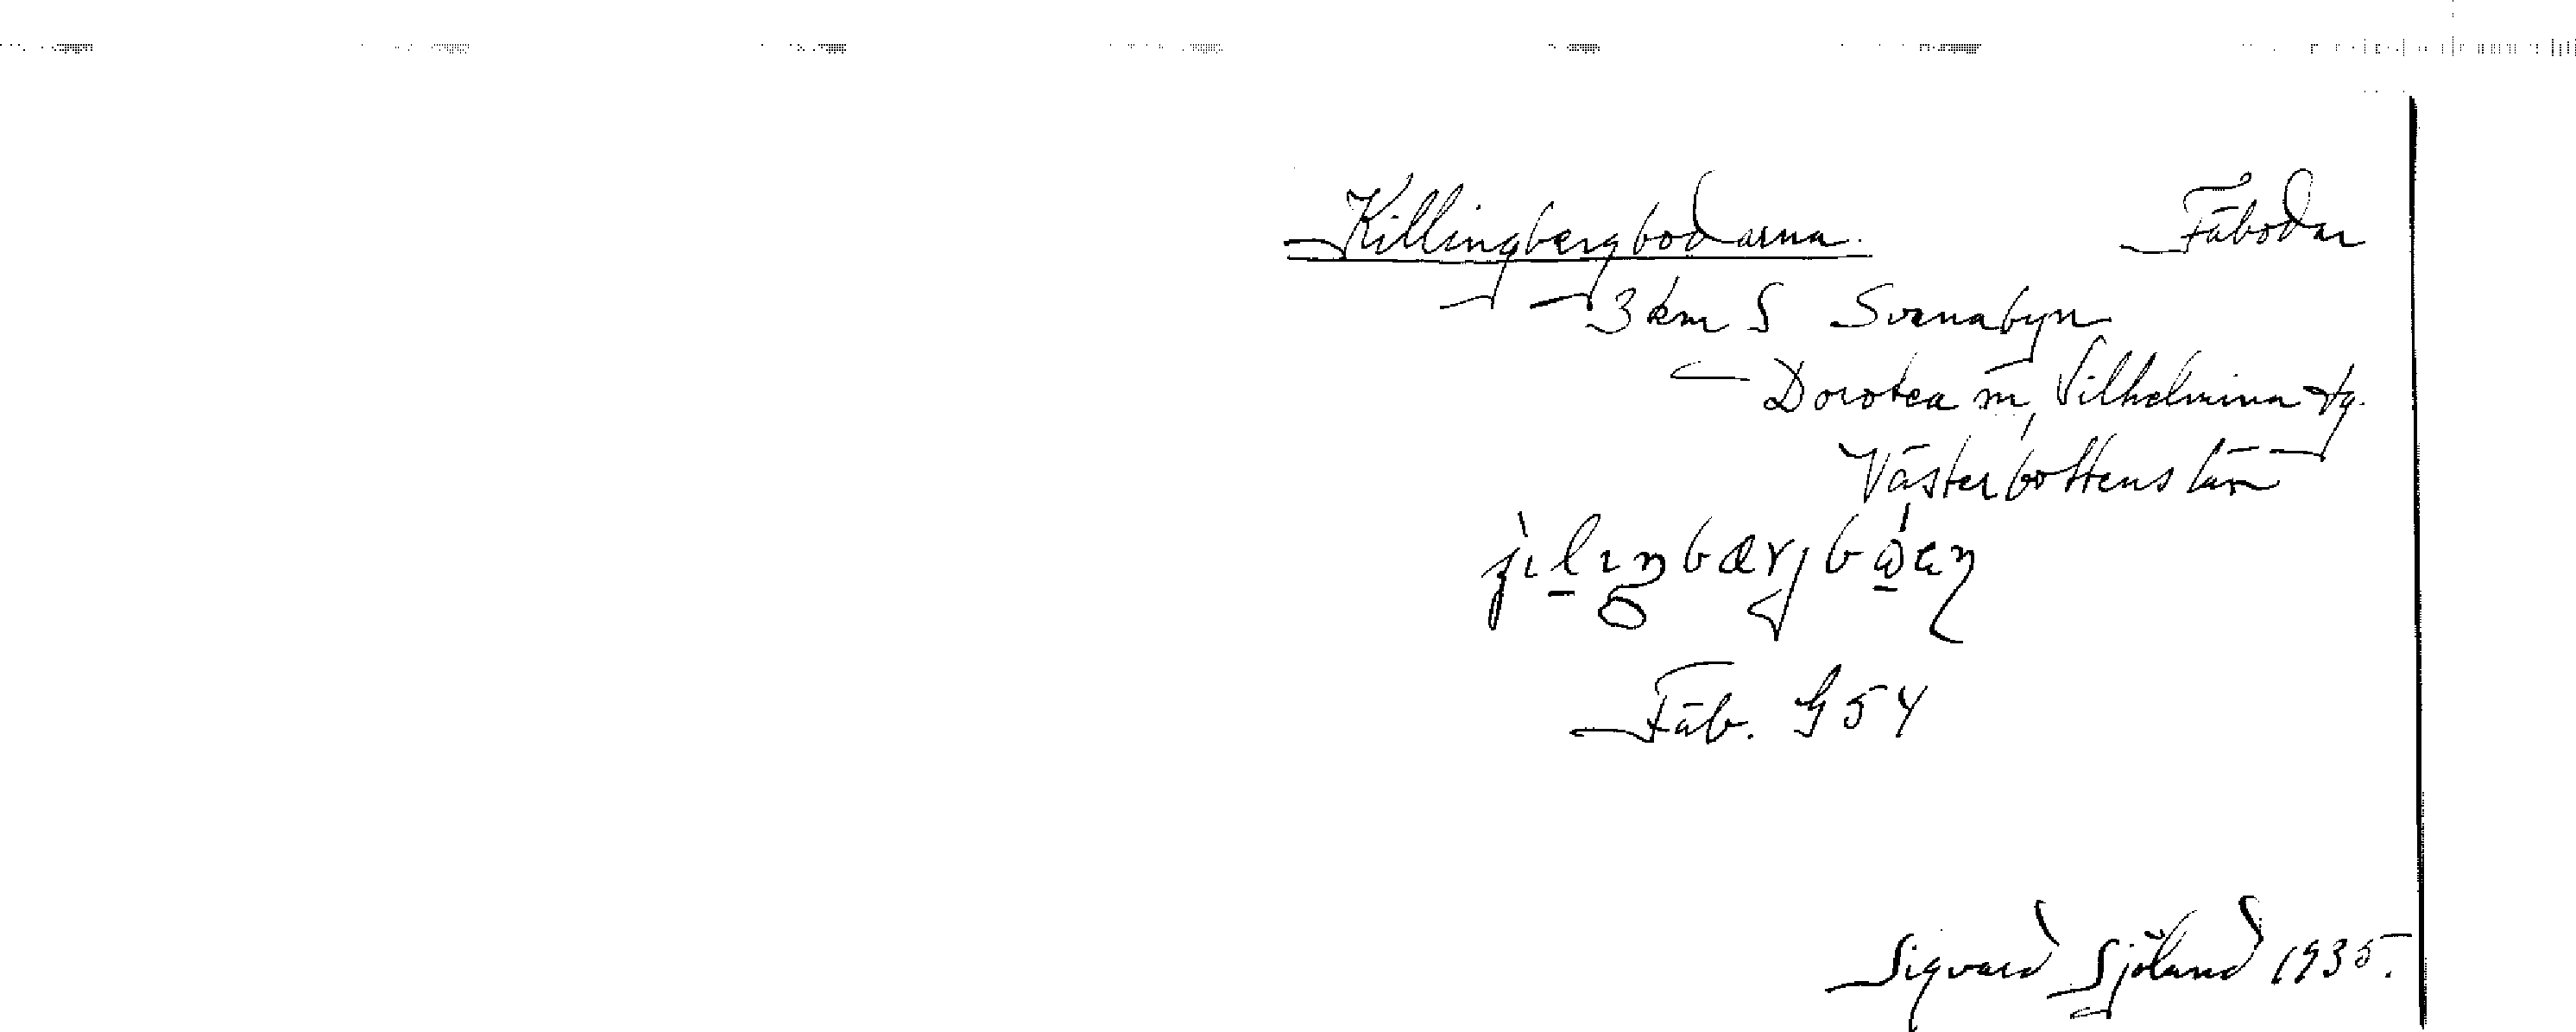 Killingbergbodarna. Fäbodar
3 km S Svanabyn
Dorotea sn, Vilhelmina tg.
Västerbottens län
Fäb. G54
Sigvard Sjöland 1935.